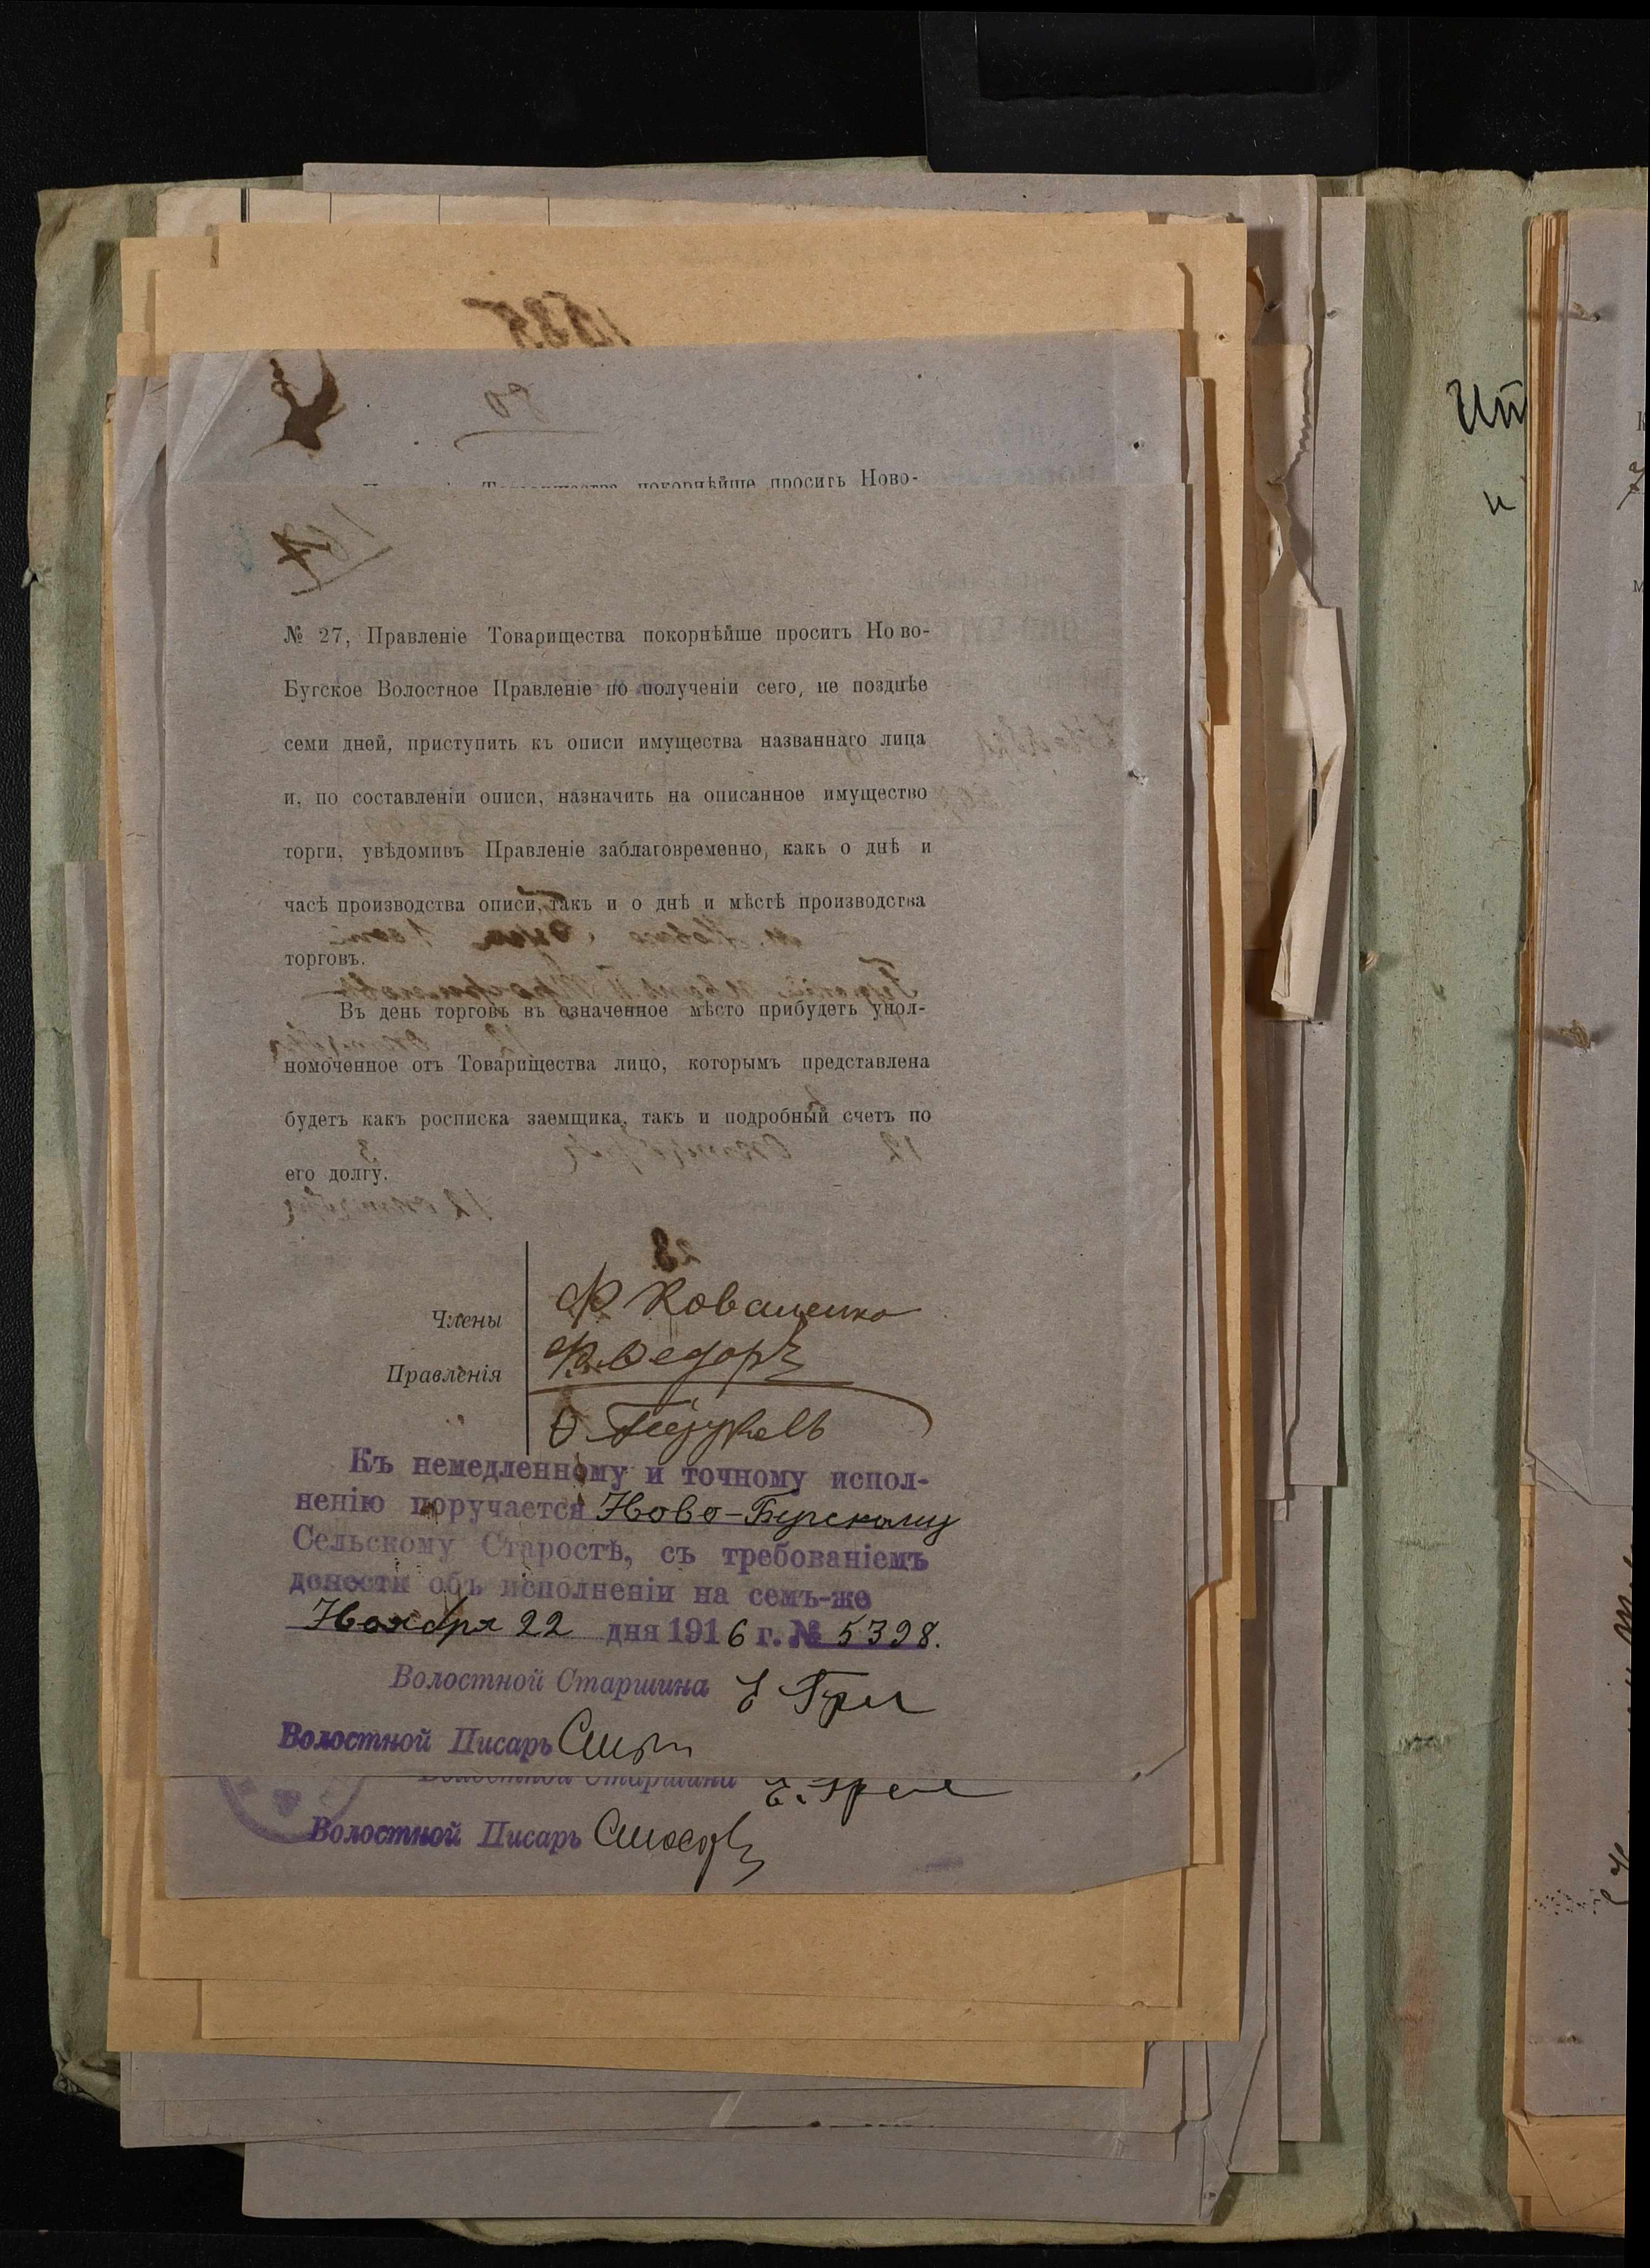 покорнѣйше проситъ Ново-
№ 27, Правленіе Товарищества покорнѣйше проситъ Ново-
Бугское Волостное Правленіе по полученіи сего, не позднѣе
семи дней, приступить къ описи имущества названнаго лица
и, по составленіи описи, назначить на описанное имущество
торги, увѣдомивъ Правленіе заблаговременно, какъ о днѣ и
часѣ производства описи, такъ и о днѣ и мѣстѣ производства
торговъ.
Въ день торговъ въ означенное мѣсто прибудетъ упол-
номоченное отъ Товарищества лицо, которымъ представлена
будетъ какъ росписка заемщика, такъ и подробный счетъ по
его долгу.
Члены
Правленія
Ф Коваленко
Къ немедленному и точному испол-
ненію поручается Ново-Бугскому
Сельскому Старостѣ, съ требованіемъ
донести объ исполненіи на семъ-же
Ноября 22 дня 1916 г. № 5398.
Волостной Старшина
Волостной Писарь
Волостной Старшина
Волостной Писарь